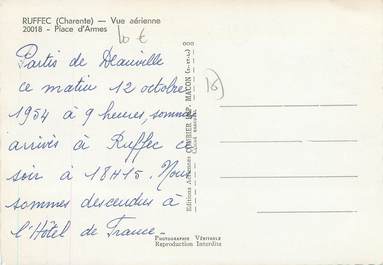 RUFFEC (Charente) — Vue aérienne
20018 - Place d'Armes
10 €
Partis de Deauville
ce matin 12 octobre
1954 à 9 heures, sommes
arrivés à Ruffec ce
soir à 18H15. Nous
sommes descendus à
l'Hôtel de France.
Editions Aériennes COMBIER IMP. MACON
PHOTOGRAPHIE VÉRITABLE
Reproduction Interdite
16